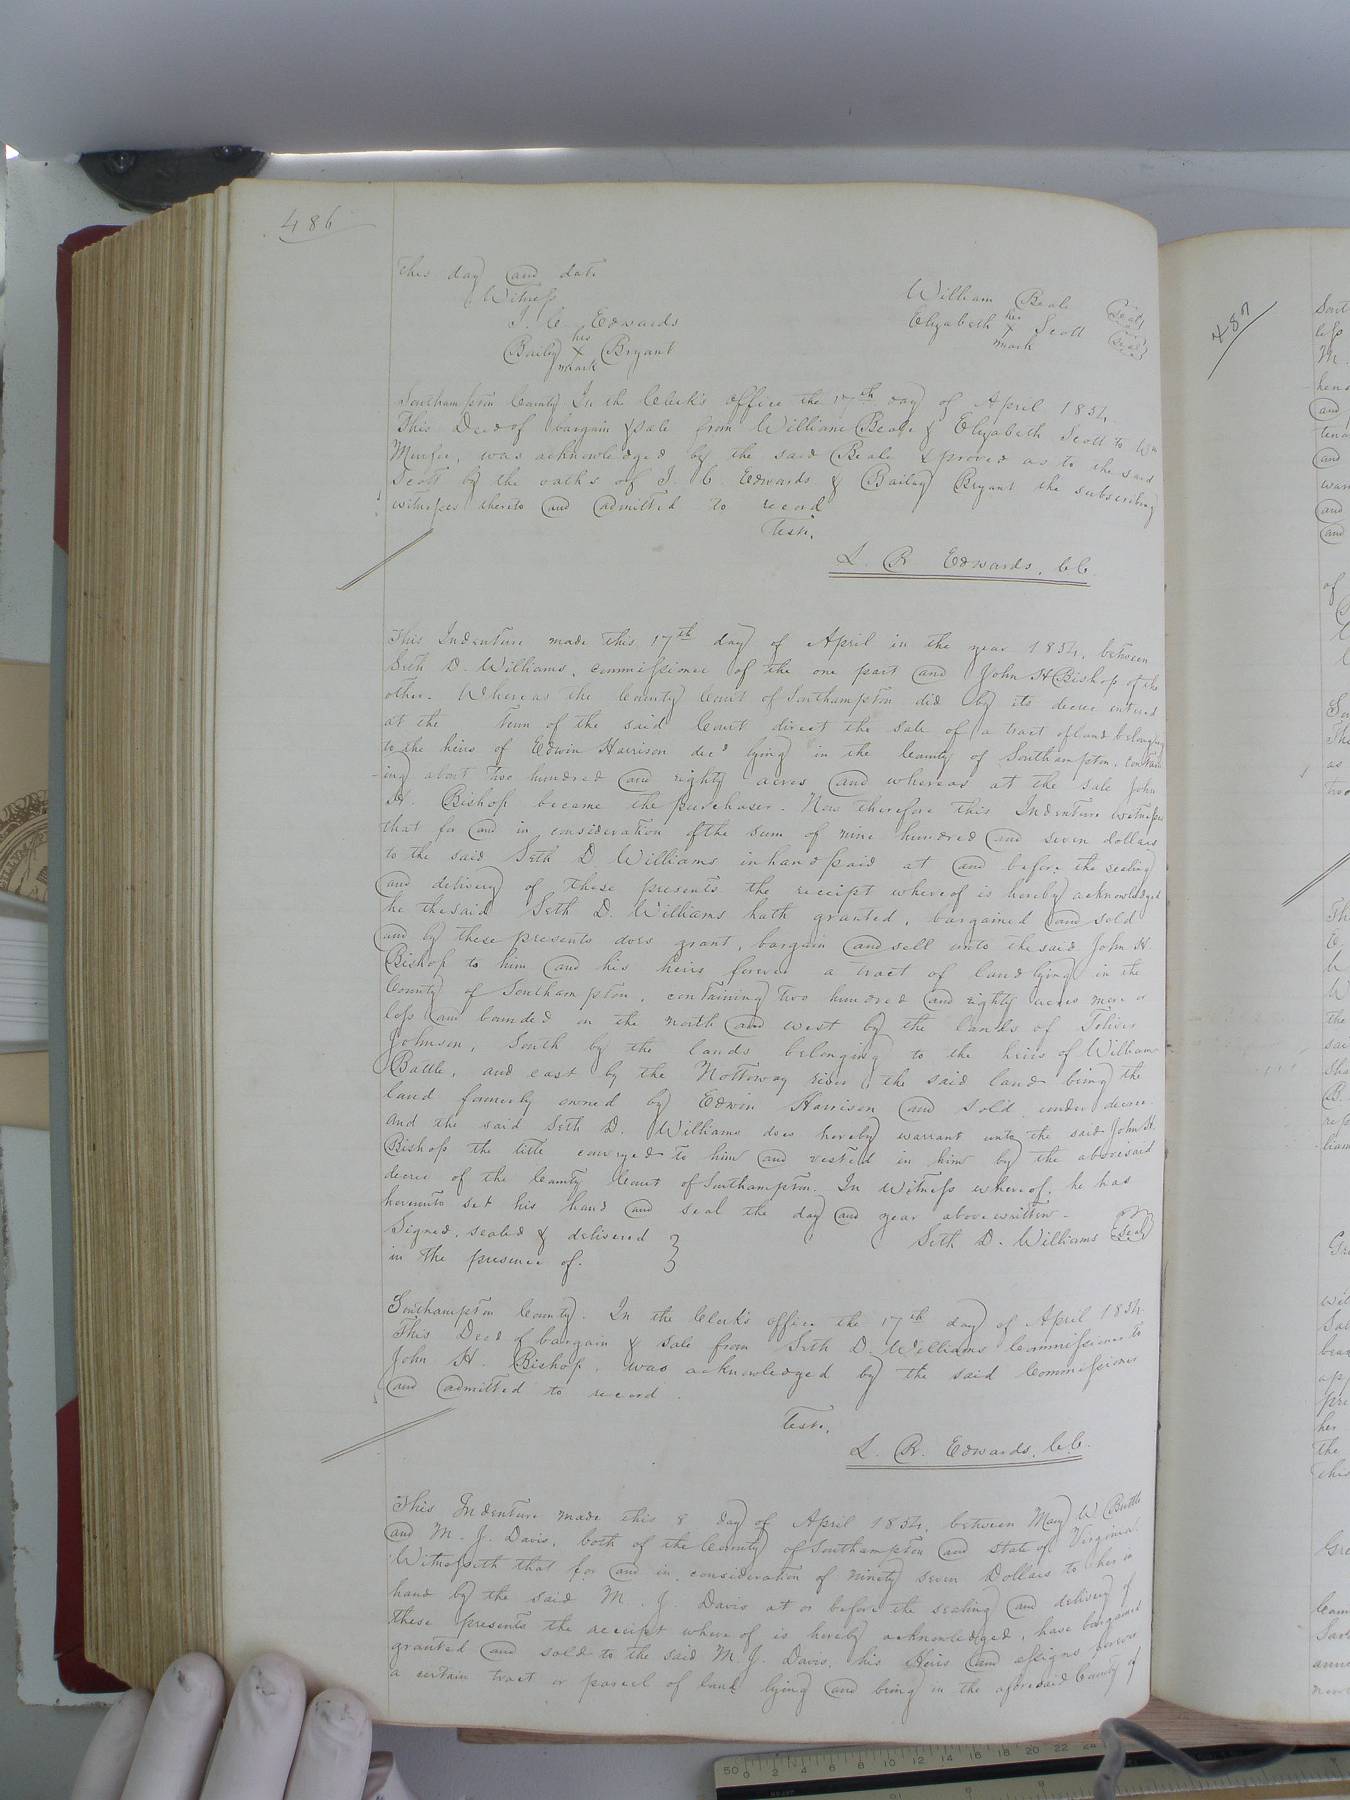 486
This day and date
Witness
William Beale Seal
J. C. Edwards
Elizabeth her X mark Scott Seal
Baily his X mark Bryant
Southampton County In the Clerk's office the 17th day of April 1854.
This Deed of bargain & sale from William Beale & Elizabeth Scott to Wm
was acknowledged by the said Beale & proved as to the said
Scott by the oaths of J. C. Edwards & Bailey Bryant the subscribing
witnesses thereto and admitted to record
Teste,
L. R Edwards, C.C.
This Indenture made this 17th day of April in the year 1854, between
Seth D. Williams, commissioner of the one part and John H Bishop of the
other. Whereas the County Court of Southampton did by its decree entered
at the Term of the said Court direct the sale of a tract of land belonging
to the heirs of Edwin Harrison decd lying in the County of Southampton, contain
-ing about two hundred and eighty acres and whereas at the sale John
H. Bishop became the purchaser. Now therefore this Indenture witnesses
that for and in consideration of the sum of nine hundred and seven dollars
to the said Seth D. Williams in hand paid at and before the sealing
and delivery of these presents the receipt whereof is hereby acknowledged
he the said Seth D. Williams hath granted, bargained and sold
and by these presents does grant, bargain and sell unto the said John H.
Bishop to him and his heirs forever a tract of land lying in the
County of Southampton, containing two hundred and eighty acres more or
less and bounded on the north and west by the lands of Toliver
Johnson, South by the lands belonging to the heirs of William
Battle, and east by the Nottoway river the said land being the
land formerly owned by Edwin Harrison and sold under decree.
And the said Seth D. Williams does hereby warrant unto the said John H.
Bishop the title conveyed to him and vested in him by the abovesaid
decree of the County Court of Southampton. In Witness whereof, he has
hereunto set his hand and seal the day and year above written.
Signed, sealed & delivered
Seth D. Williams Seal
in the presence of.
Southampton County. In the Clerk's office the 17th day of April 1854.
This Deed of bargain & sale from Seth D. Williams Commissioner to
John H. Bishop, was acknowledged by the said Commissioner
and admitted to record.
Teste,
L. R. Edwards, C.C.
This Indenture made this 8 day of April 1854, between Mary W. Battle
and M. J. Davis, both of the County of Southampton and state of Virginia.
Witnesseth that for and in consideration of ninety seven Dollars to her in
hand by the said M. J. Davis at or before the sealing and delivery of
these presents the receipt whereof is hereby acknowledged, have bargained
granted and sold to the said M. J. Davis, his Heirs and assigns forever
a certain tract or parcel of land lying and being in the aforesaid County of
487